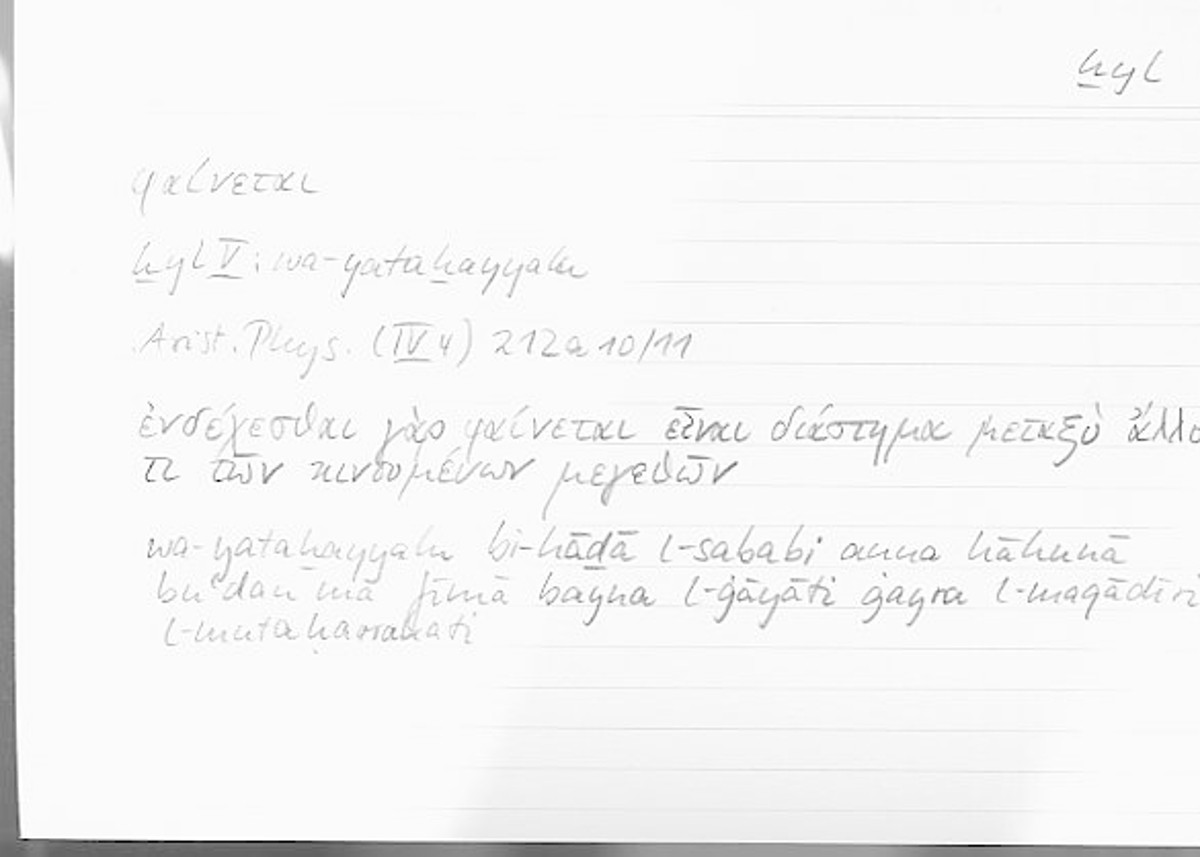 ḫyl
φαίνεται
ḫyl V: wa-yataḫayyalu
Arist. Phys. (IV 4) 212a10/11
ἐνδέχεσθαι γὰρ φαίνεται εἶναι διάστημα μεταξὺ ἄλλο
τι τῶν κινουμένων μεγεθῶν
wa-yataḫayyalu bi-hāḏā l-sababi anna hāhunā
buʿdan mā fīmā bayna l-ġāyāti ġayra l-maqādiri
l-mutaḥarrakati